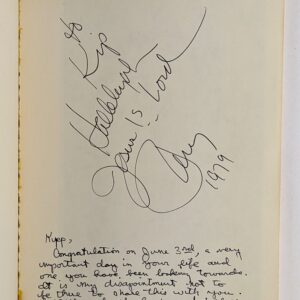 to
Kip
Hallelujah
Jesus Is Lord
1979
Kipp,
Congratulation on June 3rd, a very
important day in your life and
one you have been looking towards.
It is my disapointment not to
be there to share this with you.